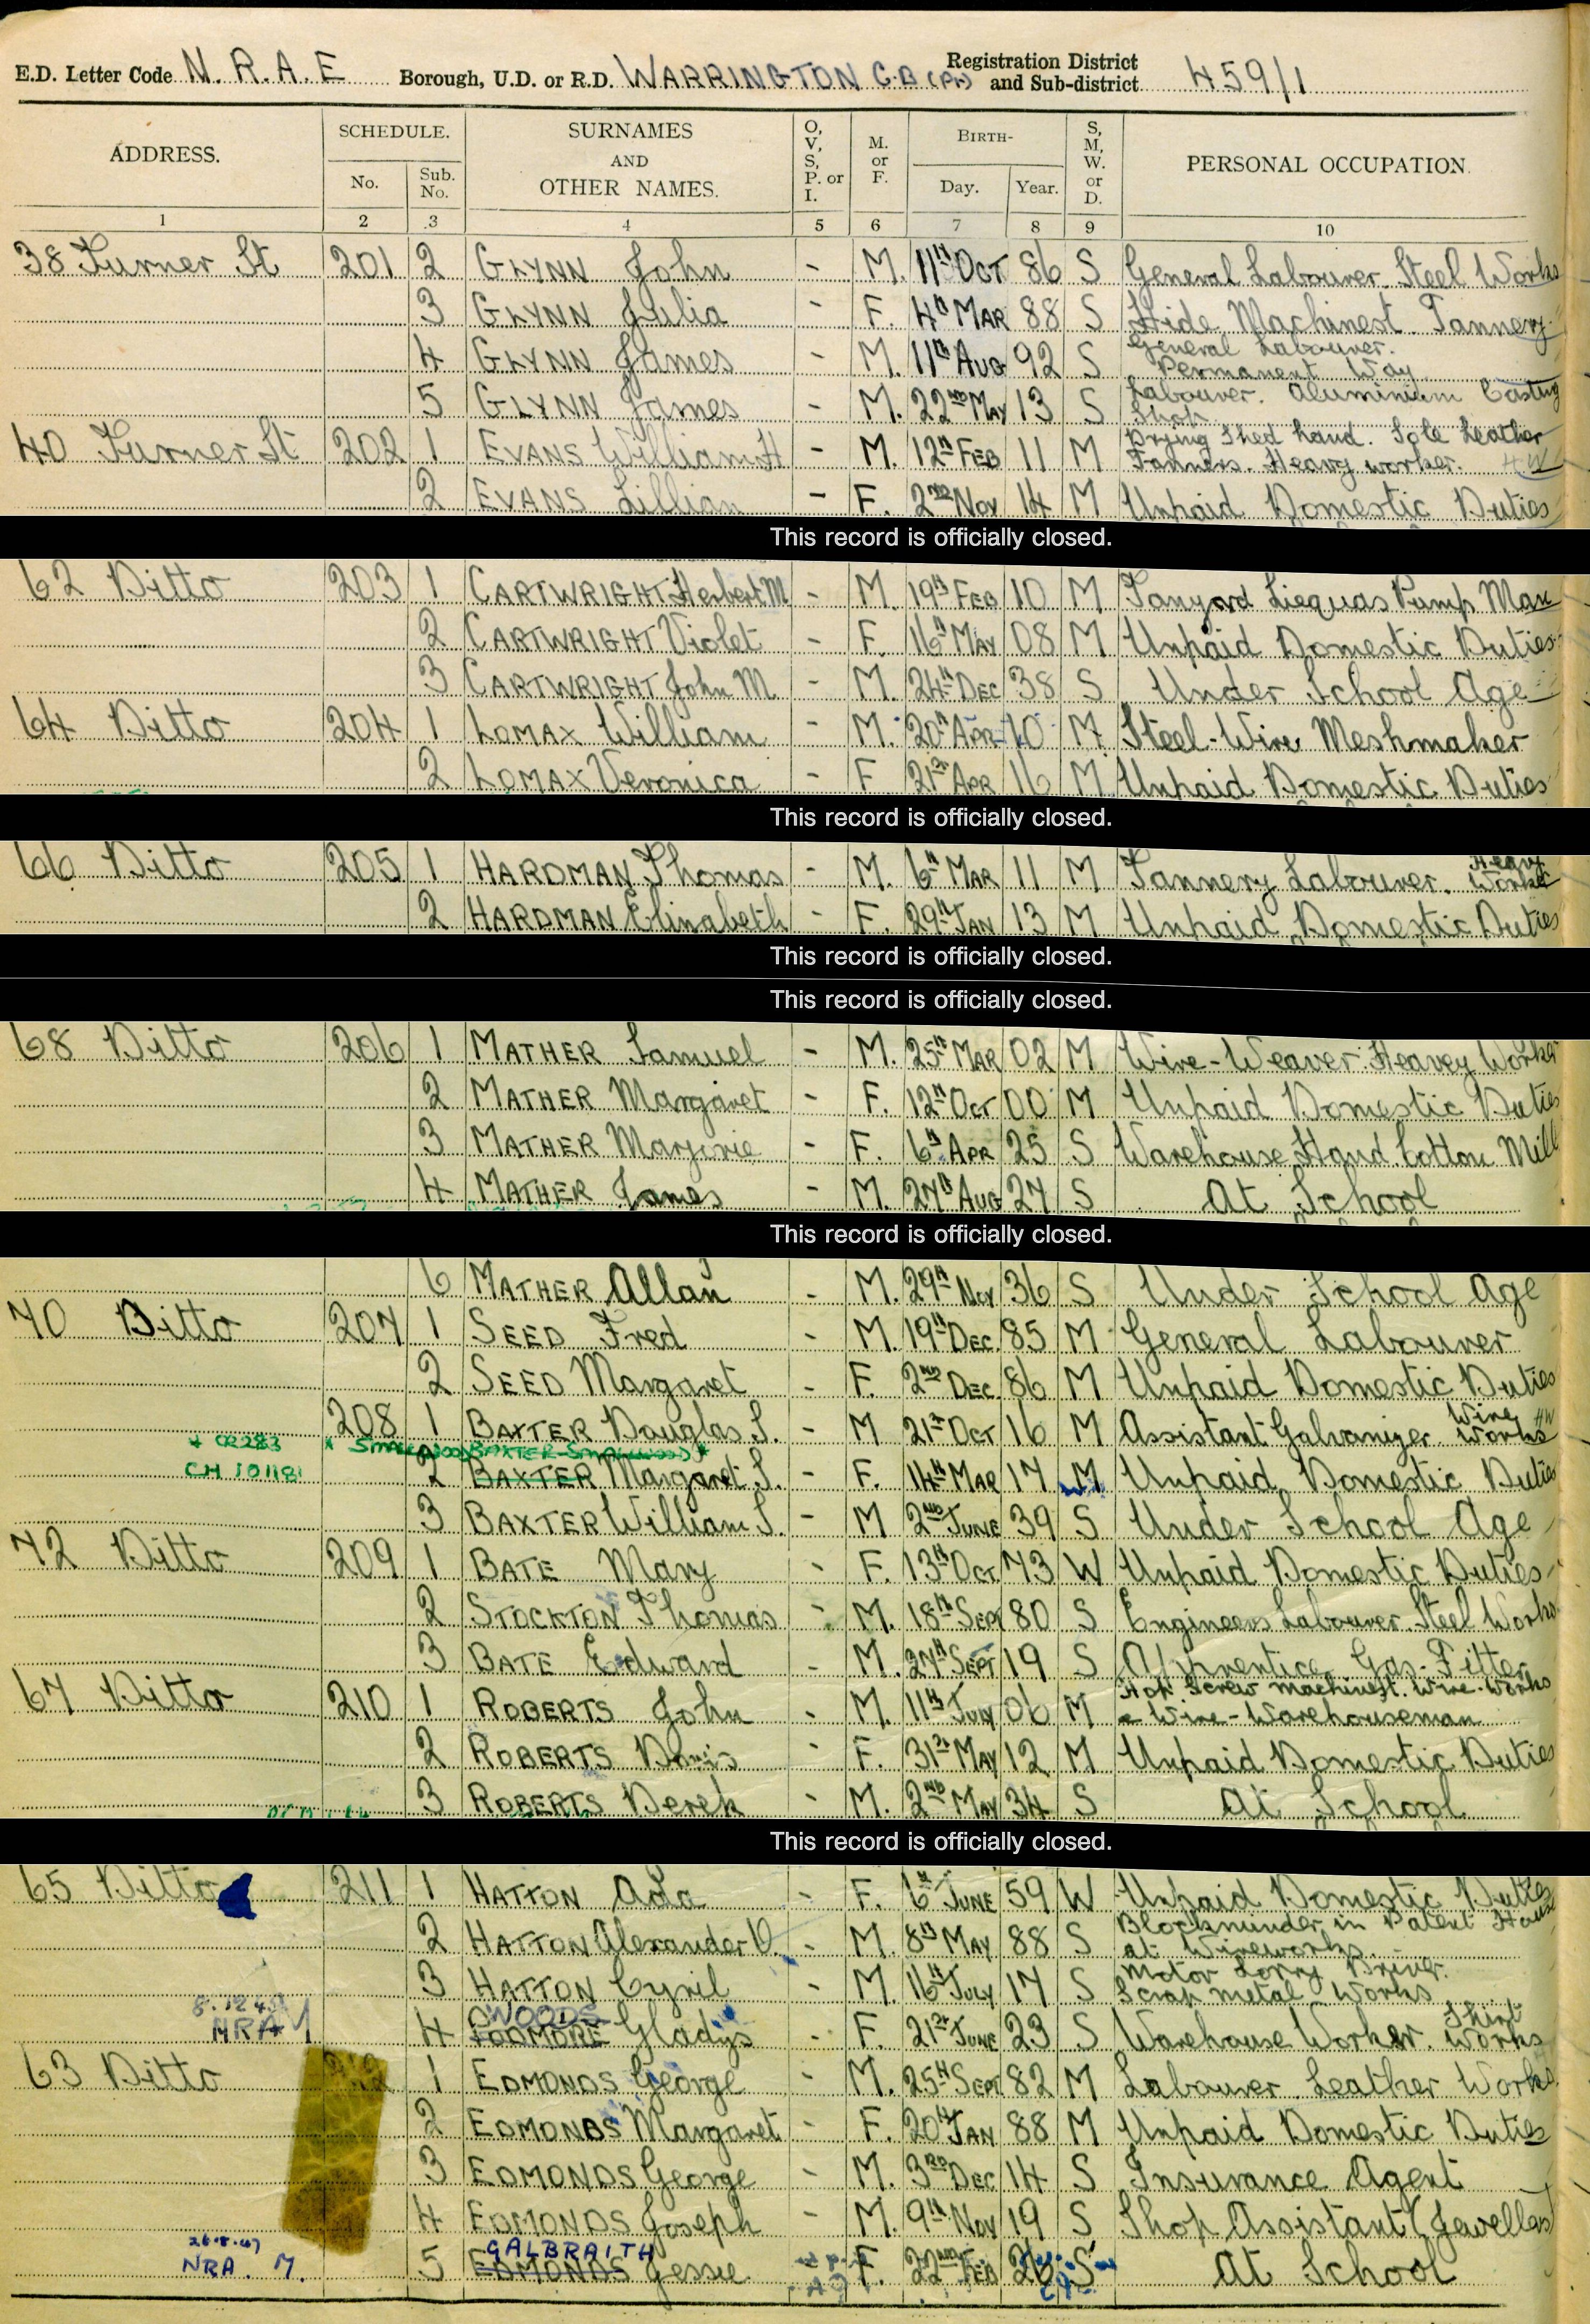 E.D. Letter Code N. R. A. E Borough, U.D. or R.D. WARRINGTON C.B (Pt) Registration District and Sub-district 459/1
ADDRESS. SCHEDULE. No. Sub. No. SURNAMES AND OTHER NAMES. O, V, S, P. or I. M. or F. BIRTH- Day. Year. S, M, W. or D. PERSONAL OCCUPATION.
1 2 3 4 5 6 7 8 9 10
38 Turner St 201 2 GLYNN John - M. 11th OCT 86 S General Labourer Steel Works
3 GLYNN Julia - F. 4th MAR 88 S Hide Machinest Tannery
4 GLYNN James - M. 11th AUG 92 S General Labourer. Permanent Way
5 GLYNN James - M. 22nd MAY 13 S Labourer. Aluminium Casting Shop
40 Turner St 202 1 EVANS William H - M. 12th FEB 11 M Drying Shed hand. Sole Leather Tanners. Heavy worker. HW
2 EVANS Lillian - F. 2nd NOV 14 M Unpaid Domestic Duties
This record is officially closed.
62 Ditto 203 1 CARTWRIGHT Herbert M - M. 19th FEB 10 M Tanyard Liequas Pump Man
2 CARTWRIGHT Violet - F. 16th MAY 08 M Unpaid Domestic Duties
3 CARTWRIGHT John M. - M. 24th DEC 38 S Under School Age
64 Ditto 204 1 LOMAX William - M. 20th APR 10 M Steel-Wire Meshmaker
2 LOMAX Veronica - F. 21st APR 16 M Unpaid Domestic Duties
This record is officially closed.
66 Ditto 205 1 HARDMAN Thomas - M. 6th MAR 11 M Tannery Labourer. Heavy Worker
2 HARDMAN Elizabeth - F. 29th JAN 13 M Unpaid Domestic Duties
This record is officially closed.
This record is officially closed.
68 Ditto 206 1 MATHER Samuel - M. 25th MAR 02 M Wire-Weaver Heavey Worker
2 MATHER Margaret - F. 12th OCT 00 M Unpaid Domestic Duties
3 MATHER Marjorie - F. 6th APR 25 S Warehouse Hand Cotton Mill
4 MATHER James - M. 27th AUG 27 S At School
This record is officially closed.
6 MATHER Allan - M. 29th NOV 36 S Under School Age
70 Ditto 207 1 SEED Fred - M. 19th DEC. 85 M General Labourer
2 SEED Margaret - F. 2nd DEC. 86 M Unpaid Domestic Duties
208 1 BAXTER Douglas S. - M 21st OCT 16 M Assistant Galvanizer Wire Works HW
CR283 SMALLWOOD BAXTER-SMALLWOOD
CH 10118 2 BAXTER Margaret S. - F. 14th MAR 17 M Unpaid Domestic Duties
3 BAXTER William S. - M 2nd JUNE 39 S Under School Age
72 Ditto 209 1 BATE Mary - F. 13th OCT. 73 W Unpaid Domestic Duties
2 STOCKTON Thomas - M. 18th SEPT 80 S Engineers Labourer Steel Works
3 BATE Edward - M. 27th SEPT 19 S Apprentice Gas-Fitter
67 Ditto 210 1 ROBERTS John - M. 11th JULY 06 M Screw machinest. Wire-Works Wire-Warehouseman
2 ROBERTS Doris - F. 31st MAY 12 M Unpaid Domestic Duties
3 ROBERTS Derek - M. 2nd MAY 34 S At School
This record is officially closed.
65 Ditto 211 1 HATTON Ada - F. 6th JUNE 59 W Unpaid Domestic Duties
2 HATTON Alexander V. - M. 8th MAY 88 S in Patent House at Wireworks
3 HATTON Cyril - M. 16th JULY 17 S Motor Lorry Driver. Scrap Metal Works
8.12.4 NRA WOODS
4 Gladys - F. 21st JUNE 23 S Warehouse Worker. Shirt Works
63 Ditto 212 1 EDMONDS George - M. 25th SEPT 82 M Labourer Leather Works
2 EDMONDS Margaret - F. 20th JAN 88 M Unpaid Domestic Duties
3 EDMONDS George - M. 3rd DEC 14 S Insurance Agent
4 EDMONDS Joseph - M. 9th NOV 19 S Shop Assistant (Jewellers)
26.8.47 GALBRAITH
NRA. M. 5 EDMONDS Jessie F. 22nd FEB 26 S At School